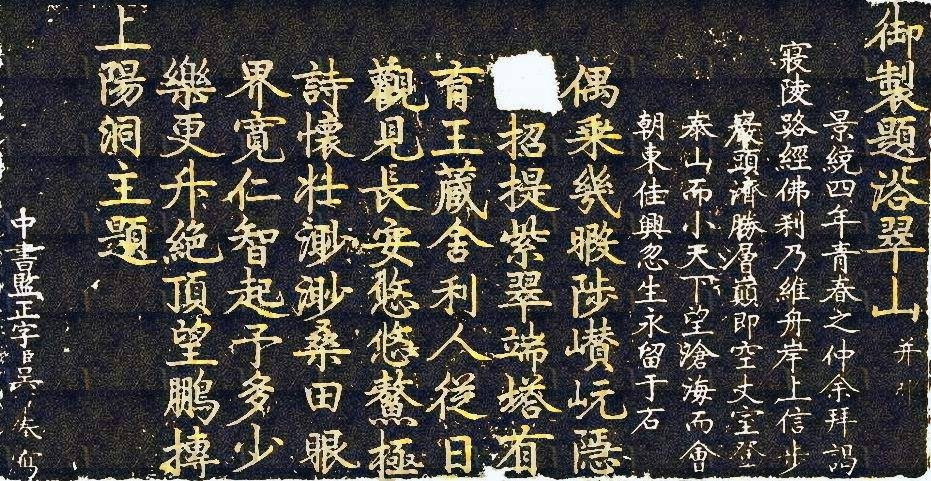 御製題浴翠山并引
景統四年青春之仲余拜謁
寢陵路經佛刹乃維舟岸上信步
巖頭濟勝層巔即空丈室登
泰山而小天下望滄海而會
朝東佳興忽生永留于石
偶乘幾暇陟巑岏隱
招提紫翠端塔有
育王藏舍利人從日
觀見長安憨悠鰲極
詩懷壯渺渺桑田眼
界寬仁智起予多少
樂更升絶頂望鵬摶
上陽洞主題
中書監正字臣吳 寫